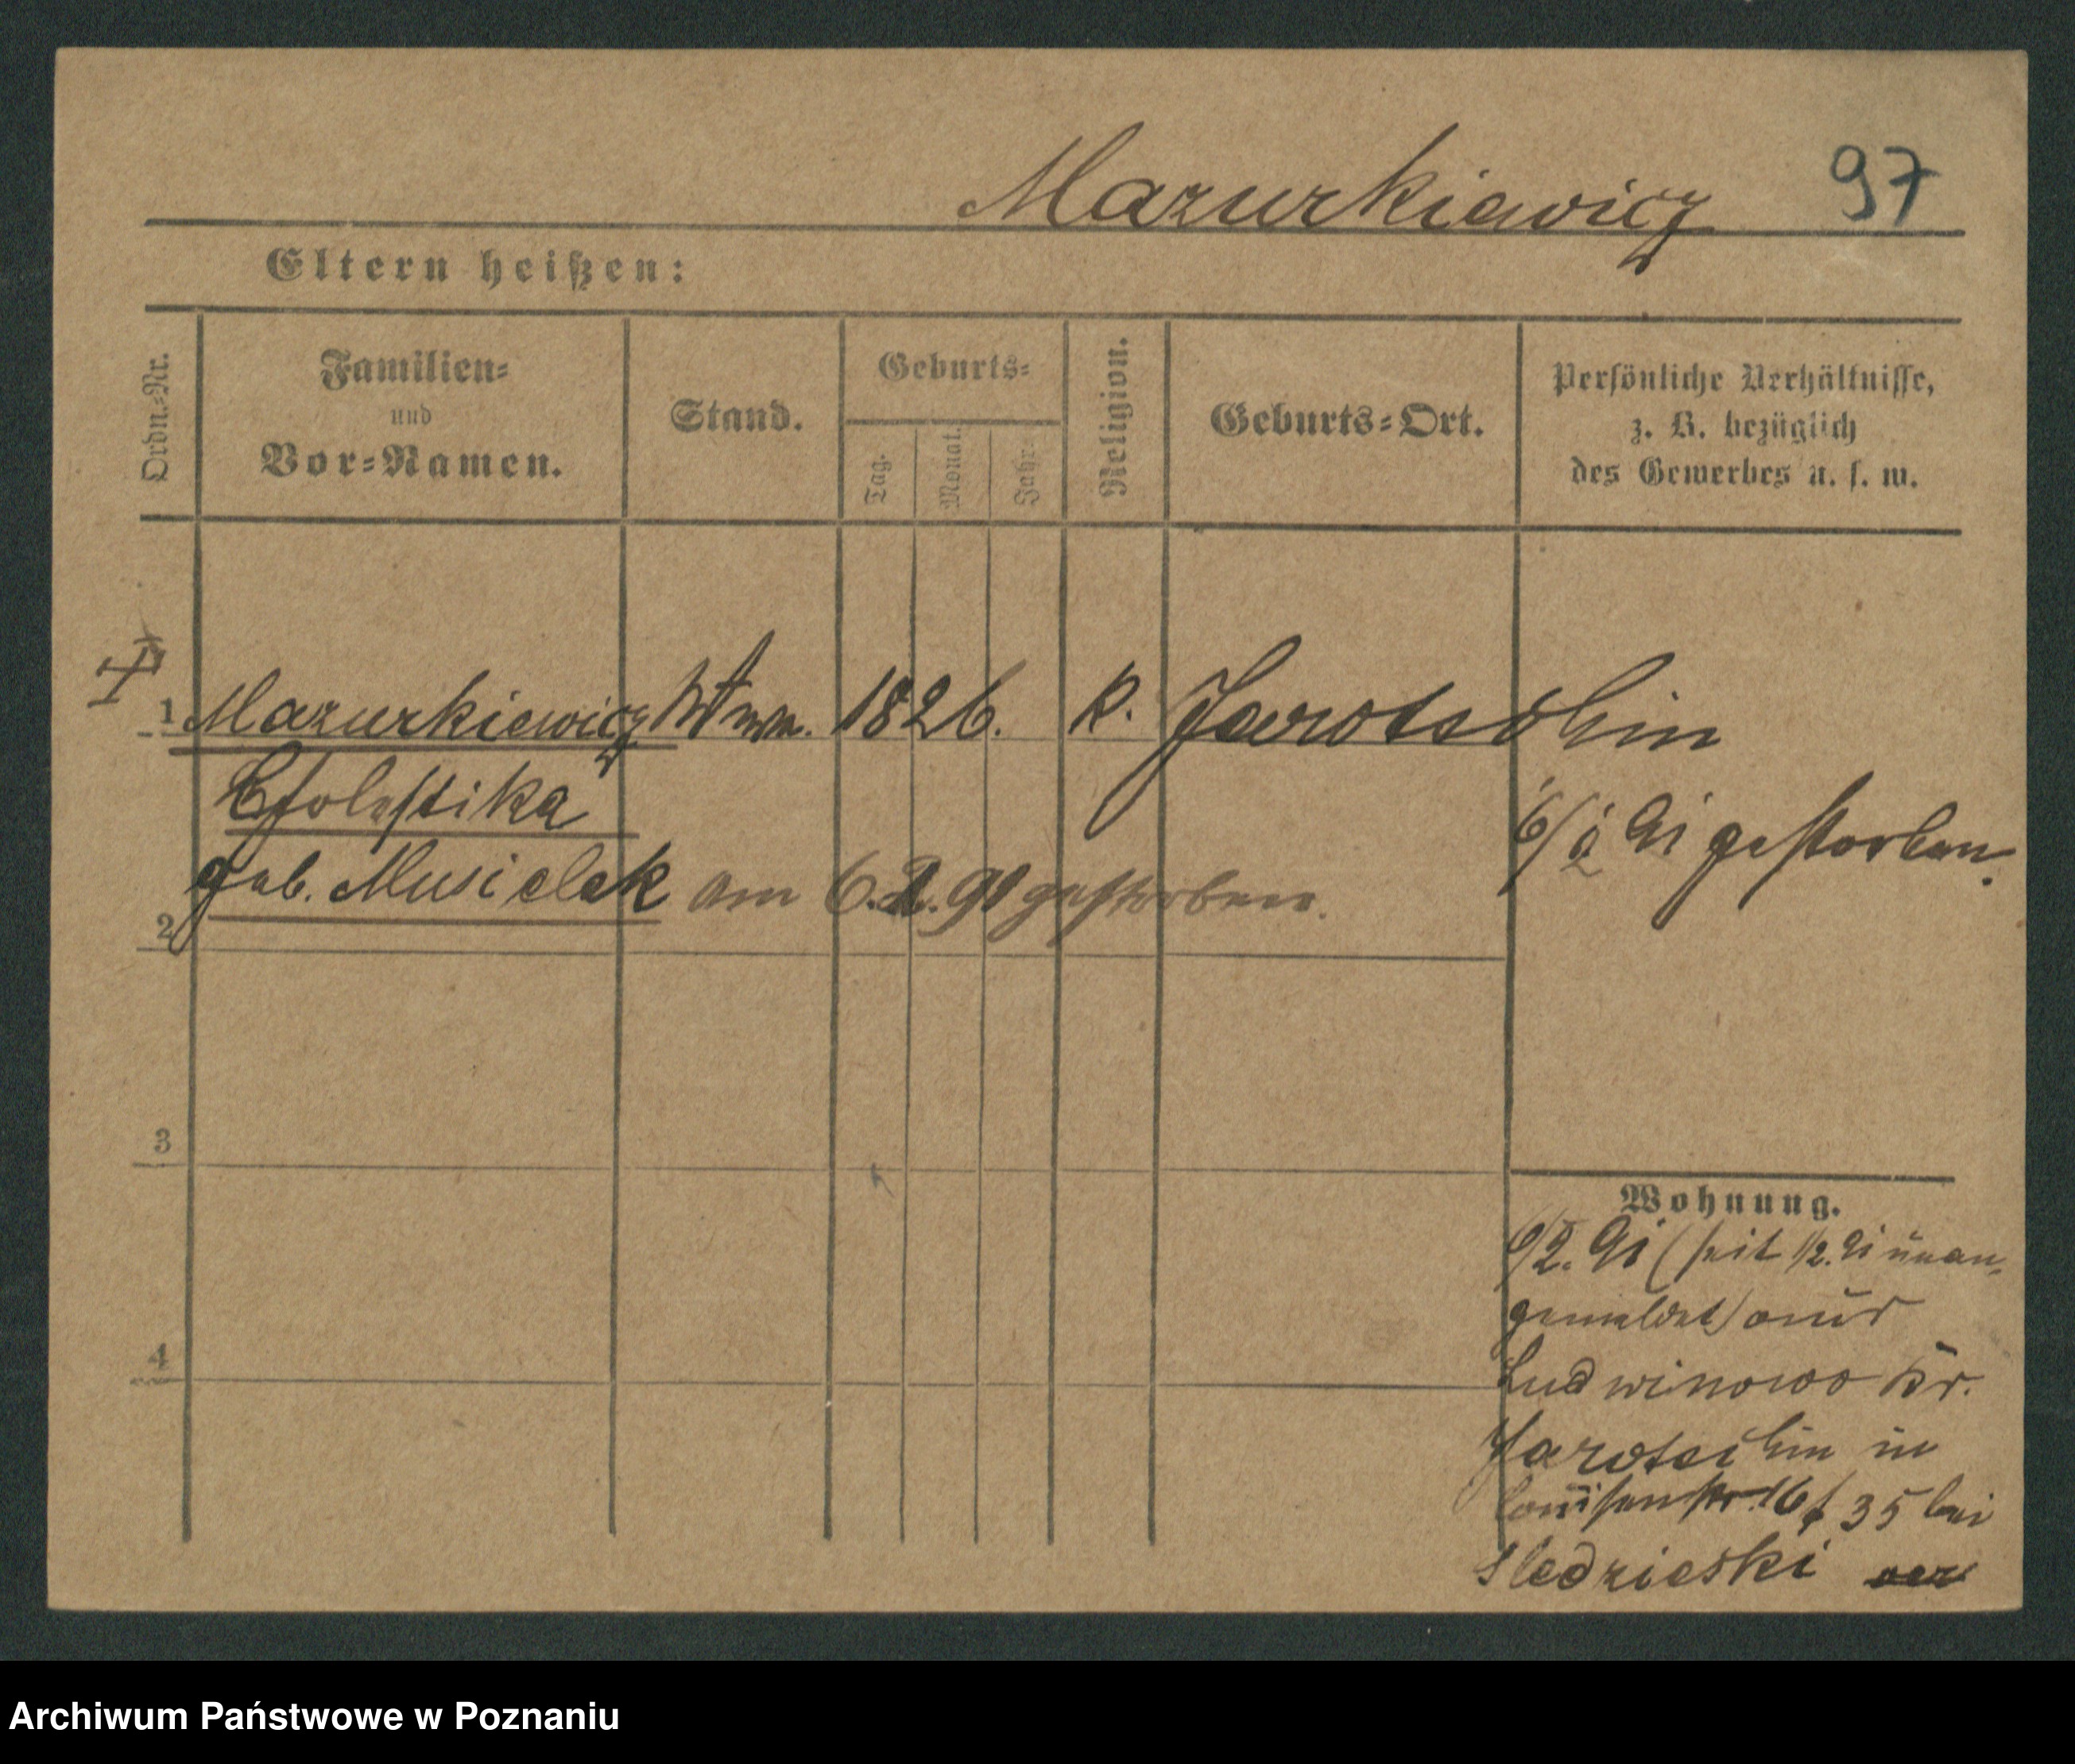 Mazurkiewicz 97
Eltern heißen:
Ordn.-Nr.
Familien-
und
Vor-Namen.
Stand.
Geburts-
Tag.
Monat.
Jahr.
Religion.
Geburts-Ort.
Persönliche Verhältnisse,
z. B. bezüglich
des Gewerbes u. s. w.
1 Mazurkiewicz Wtwe. 1826. k. Jarotschin
geb. Musielak am 6.2.91 gestorben.
6/2 91 gestorben.
2
3
4
Wohnung.
6/2. 91 (seit 1/2. 91 unan-
gemeldet) aus
Ludwinowo Kr.
Jarotschin in
Louisenstr. 16 35 bei
Sledzieski
Archiwum Państwowe w Poznaniu